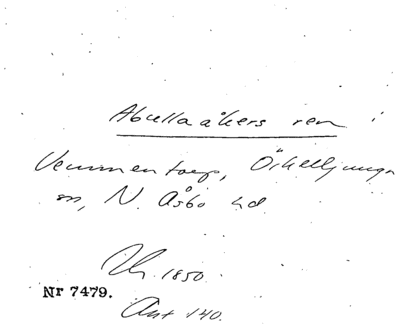 Abullaåkers ren i
Vemmentorp, Örkelljunga
sn, N. Åsbo hd
1850.
Nr 7479.
Ant 140.